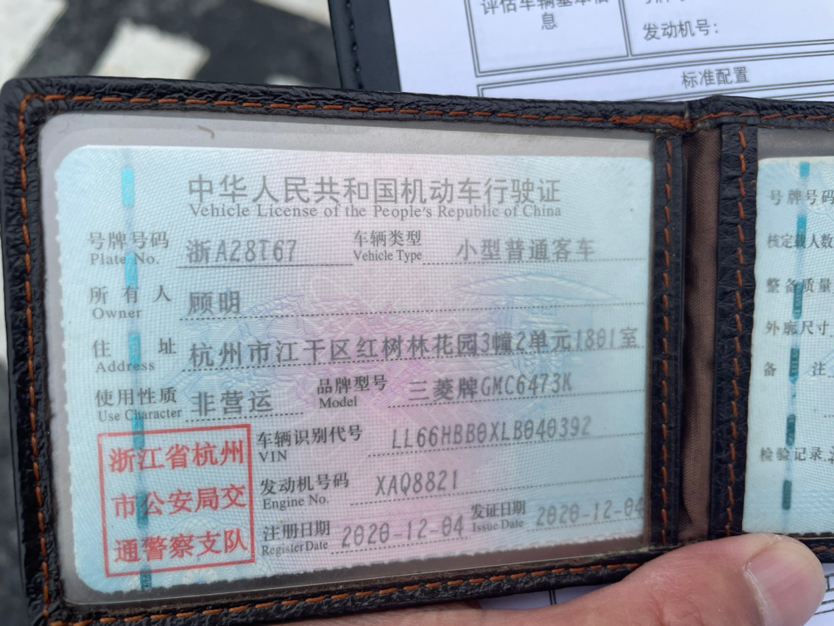 评估车辆基本信
息
发动机号：
标准配置
中华人民共和国机动车行驶证
Vehicle License of the People's Republic of China
号牌号码 浙A28T67 车辆类型 小型普通客车
Plate No. Vehicle Type
所有人 顾明
Owner
住址 杭州市江干区红树林花园3幢2单元1801室
Address
使用性质 非营运 品牌型号 三菱牌GMC6473K
Use Character Model
浙江省杭州
市公安局交
通警察支队
车辆识别代号 LL66HBB0XLB040392
VIN
发动机号码 XAQ8821
Engine No.
注册日期 2020-12-04 发证日期 2020-12-04
Register Date Issue Date
号牌号码
核定载人数
整备质量
外廓尺寸
备注
检验记录